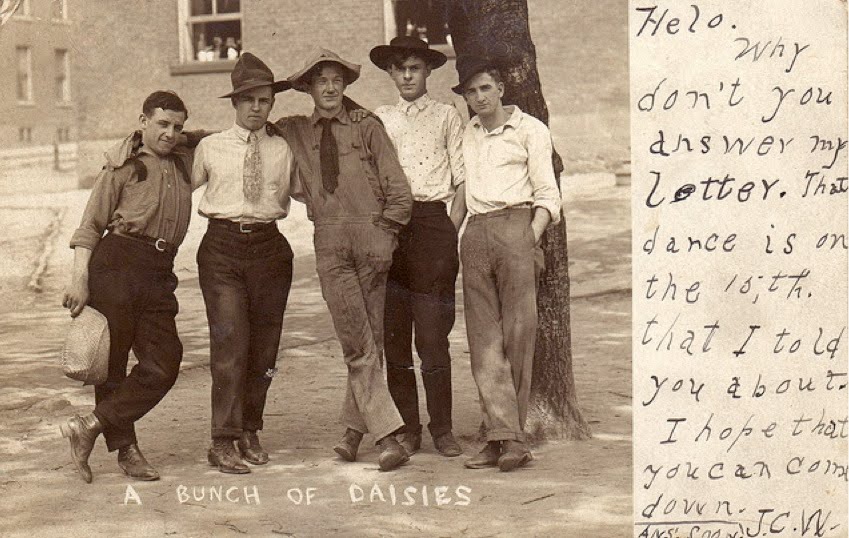 A BUNCH OF DAISIES
Helo.
Why
don't you
answer my
letter. That
dance is on
the 15,th.
that I told
you about.
I hope that
you can come
down.
Ans. Soon J.C.W.